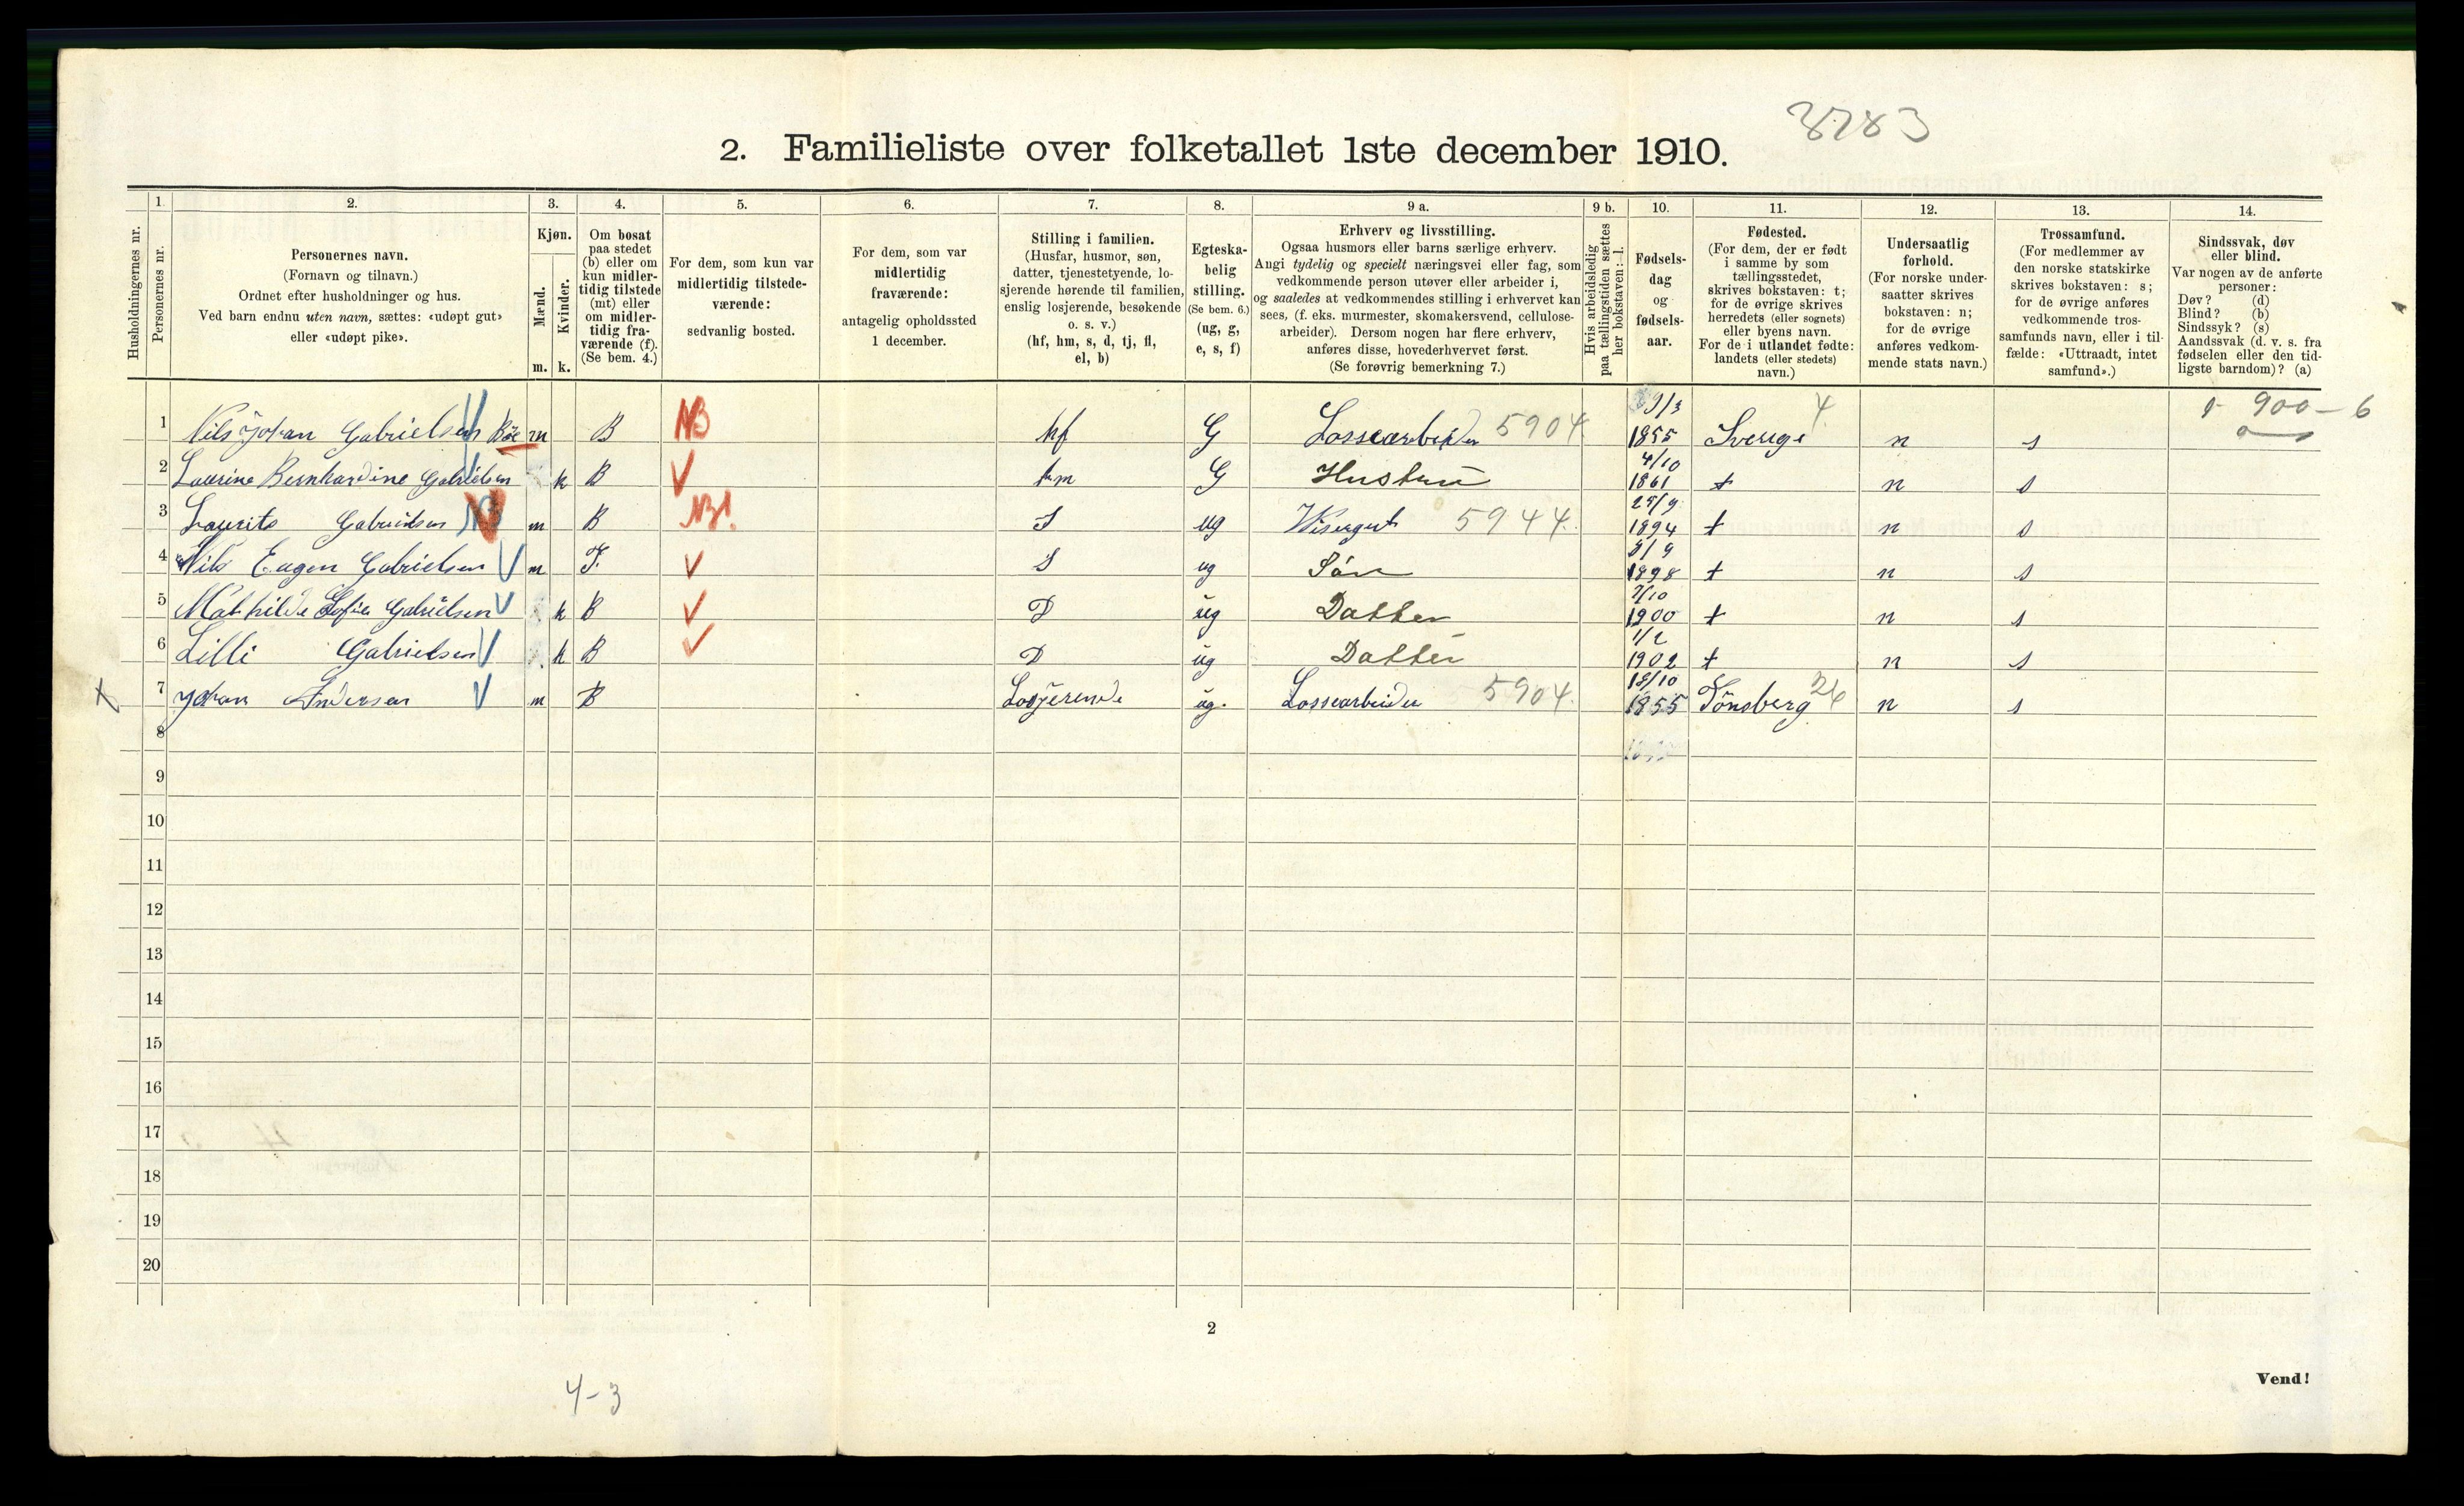 3783
2. Familieliste over folketallet 1ste december 1910.
Husholdningernes nr.
1. Personernes nr.
2. Personernes navn.
(Fornavn og tilnavn.)
Ordnet efter husholdninger og hus.
Ved barn endnu uten navn, sættes: «udøpt gut»
eller «udøpt pike».
3. Kjøn.
Mænd. m.
Kvinder. k.
4. Om bosat
paa stedet
(b) eller om
kun midler-
tidig tilstede
(mt) eller
om midler-
tidig fra-
værende (f).
(Se bem. 4.)
5. For dem, som kun var
midlertidig tilstede-
værende:
sedvanlig bosted.
6. For dem, som var
midlertidig
fraværende:
antagelig opholdssted
1 december.
7. Stilling i familien.
(Husfar, husmor, søn,
datter, tjenestetyende, lo-
sjerende hørende til familien,
enslig losjerende, besøkende
o. s. v.)
(hf, hm, s, d, tj, fl,
el, b)
8. Egteska-
belig
stilling.
(Se bem. 6.)
(ug, g,
e, s, f)
9 a. Erhverv og livsstilling.
Ogsaa husmors eller barns særlige erhverv.
Angi tydelig og specielt næringsvei eller fag, som
vedkommende person utøver eller arbeider i,
og saaledes at vedkommendes stilling i erhvervet kan
sees, (f. eks. murmester, skomakersvend, cellulose-
arbeider). Dersom nogen har flere erhverv,
anføres disse, hovederhvervet først.
(Se forøvrig bemerkning 7.)
9 b. Hvis arbeidsledig
paa tællingstiden sættes
her bokstaven: l.
10. Fødsels-
dag
og
fødsels-
aar.
11. Fødested.
(For dem, der er født
i samme by som
tællingsstedet,
skrives bokstaven: t;
for de øvrige skrives
herredets (eller sognets)
eller byens navn.
For de i utlandet fødte:
landets (eller stedets)
navn.)
12. Undersaatlig
forhold.
(For norske under-
saatter skrives
bokstaven: n;
for de øvrige
anføres vedkom-
mende stats navn.)
13. Trossamfund.
(For medlemmer av
den norske statskirke
skrives bokstaven: s;
for de øvrige anføres
vedkommende tros-
samfunds navn, eller i til-
fælde: «Uttraadt, intet
samfund».)
14. Sindssvak, døv
eller blind.
Var nogen av de anførte
personer:
Døv? (d)
Blind? (b)
Sindssyk? (s)
Aandssvak (d. v. s. fra
fødselen eller den tid-
ligste barndom)? (a)
1 Nils Johan Gabrielsen m B NB hf G Lossearbeider 5904 9/3 1855 Sverige 4 n s 900 – 6
2 Laurine Bernhardine Gabrielsen k B hm G Hustru 4/10 1861 t n s
3 Laurits Gabrielsen m B NB! S ug Visergut 5944. 29/9 1894 t n s
4 Nils Eugen Gabrielsen m F. S ug Sön 1898 t n s
5 Mathilde Sofie Gabrielsen k B D ug Datter 7/10 1900 t n s
6 Lilli Gabrielsen k B D ug Datter 1/2 1902 t n s
7 Johan Andersen m B Losjerende ug. Lossearbeider 5904. 18/10 1855 Tönsberg 26 n s
8
9
10
11
12
13
14
15
16
17
18
19
20
2
Vend!
4-3